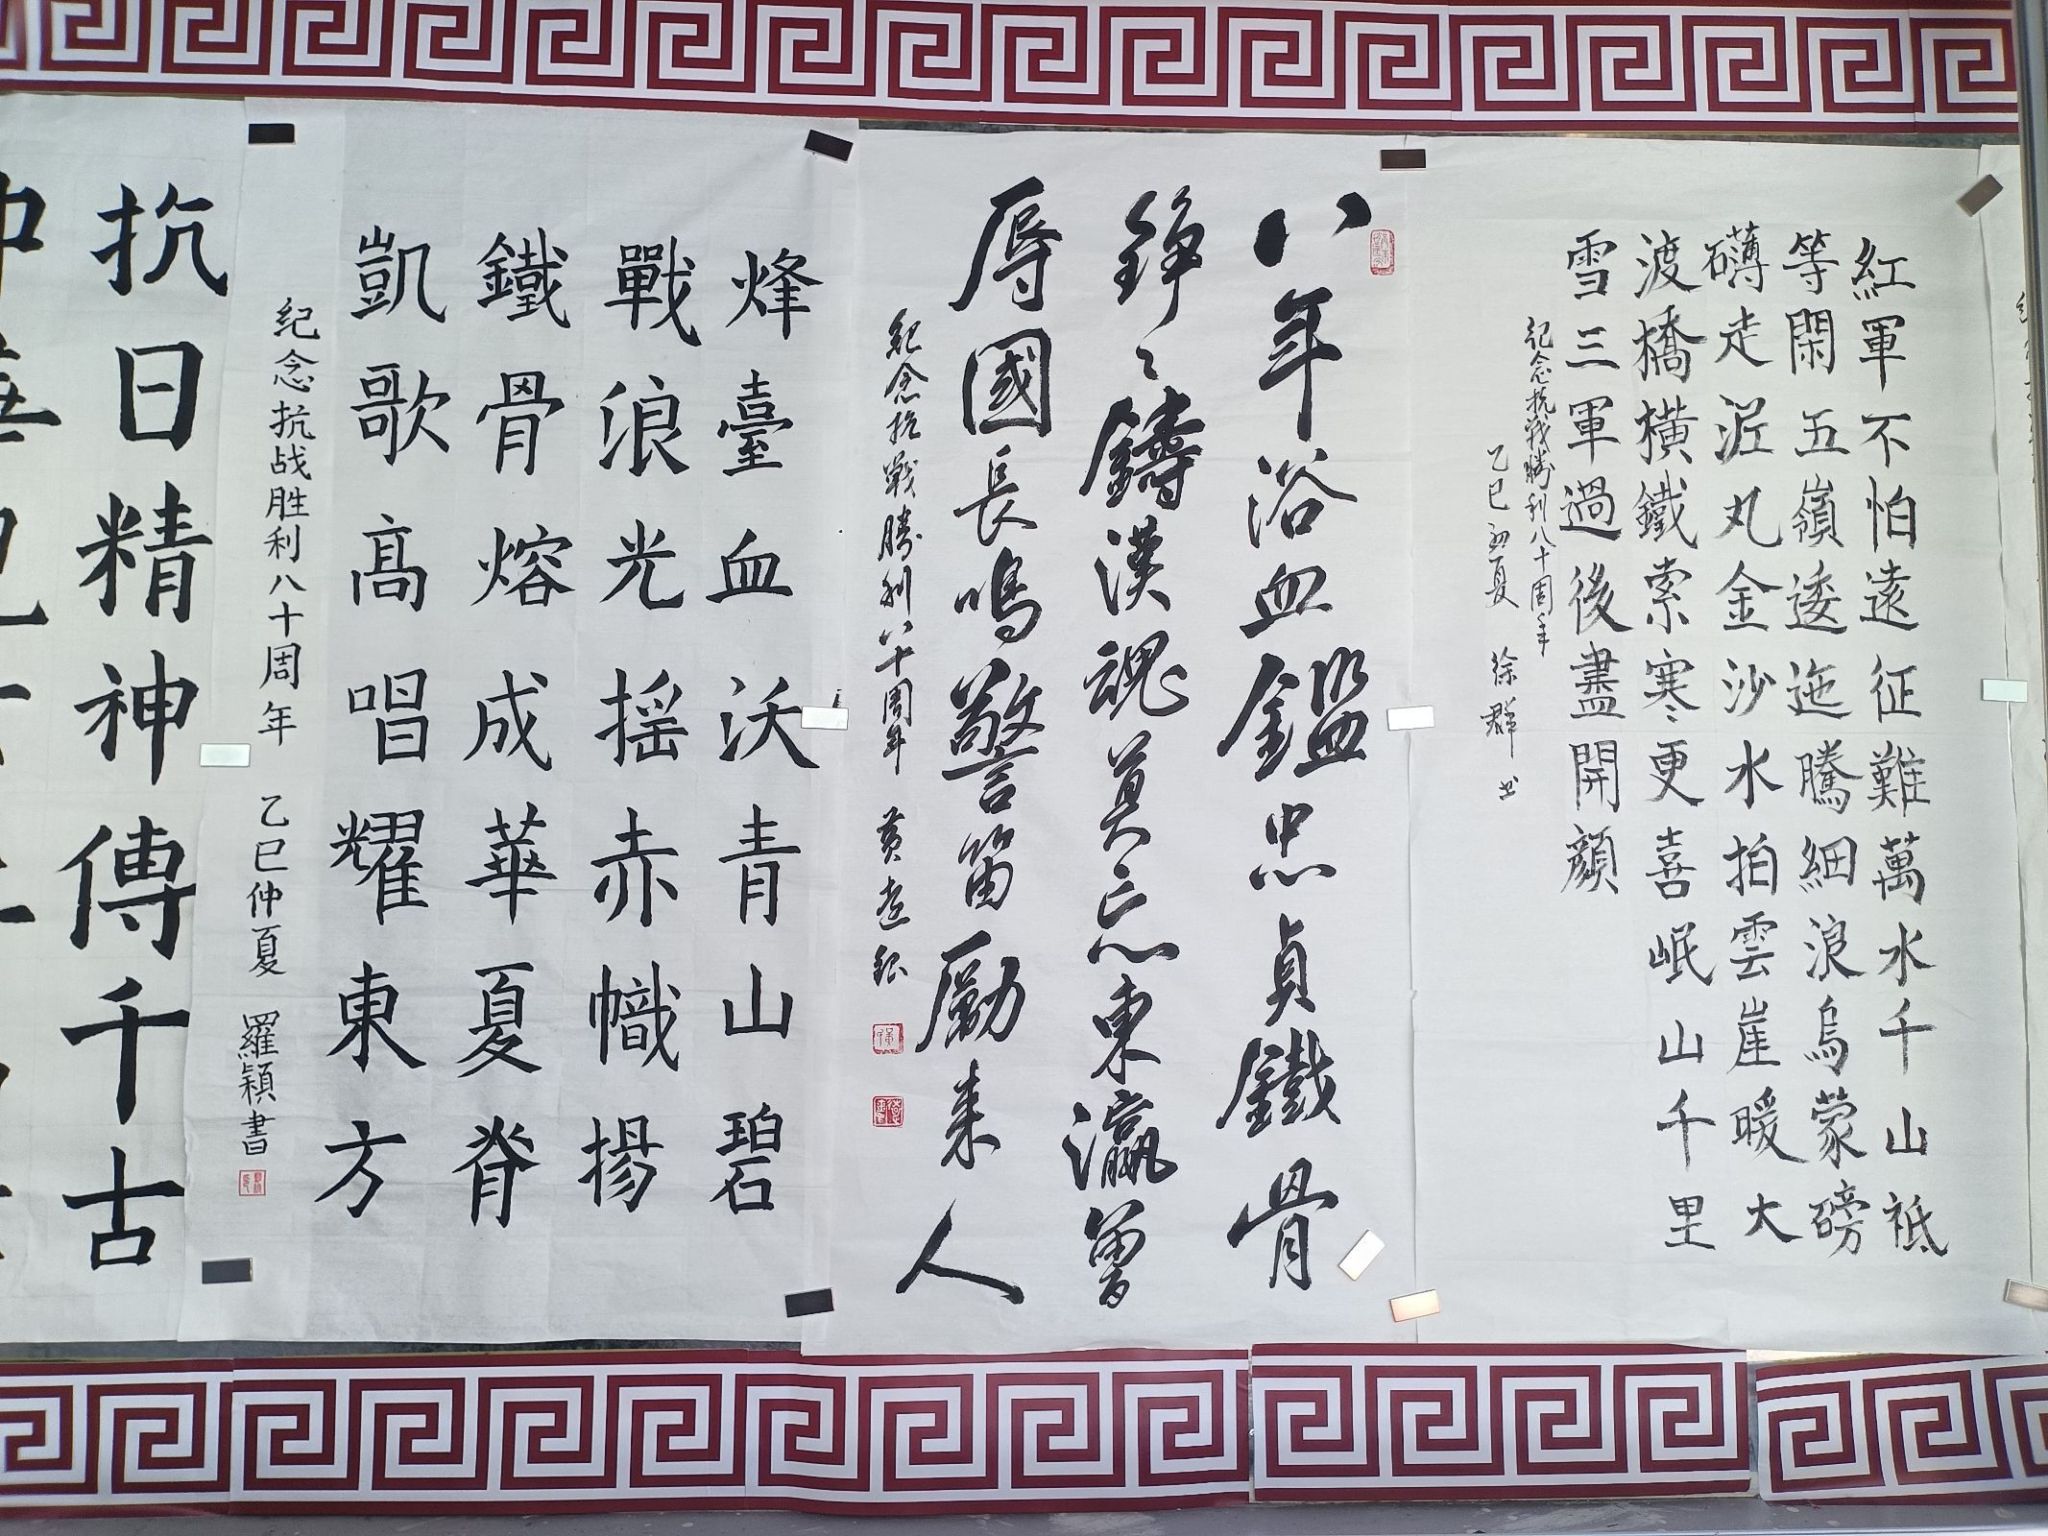 紅軍不怕遠征難萬水千山祗
等閑五嶺逶迤騰細浪烏蒙磅
礴走泥丸金沙水拍雲崖暖大
渡橋橫鐵索寒更喜岷山千里
雪三軍過後盡開顔
记念抗戰勝利八十周年
乙巳初夏 徐群书
八年浴血鑑忠貞鐵骨
錚〻鑄漢魂莫忘東瀛曾
辱國長鳴警笛勵来人
紀念抗戰勝利八十周年 黄
烽臺血沃青山碧
戰浪光摇赤幟揚
鐵骨熔成華夏脊
凱歌高唱耀東方
纪念抗战胜利八十周年 乙巳仲夏 羅穎書
抗日精神傳千古